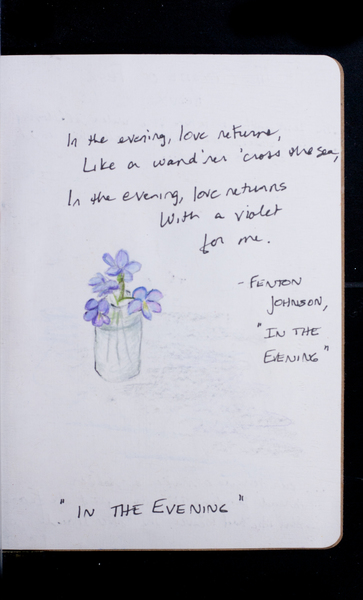 In the evening, love returns,
Like a wand'rer 'cross the sea,
In the evening, love returns
With a violet
for me.
- FENTON
JOHNSON,
"IN THE
EVENING"
"IN THE EVENING"